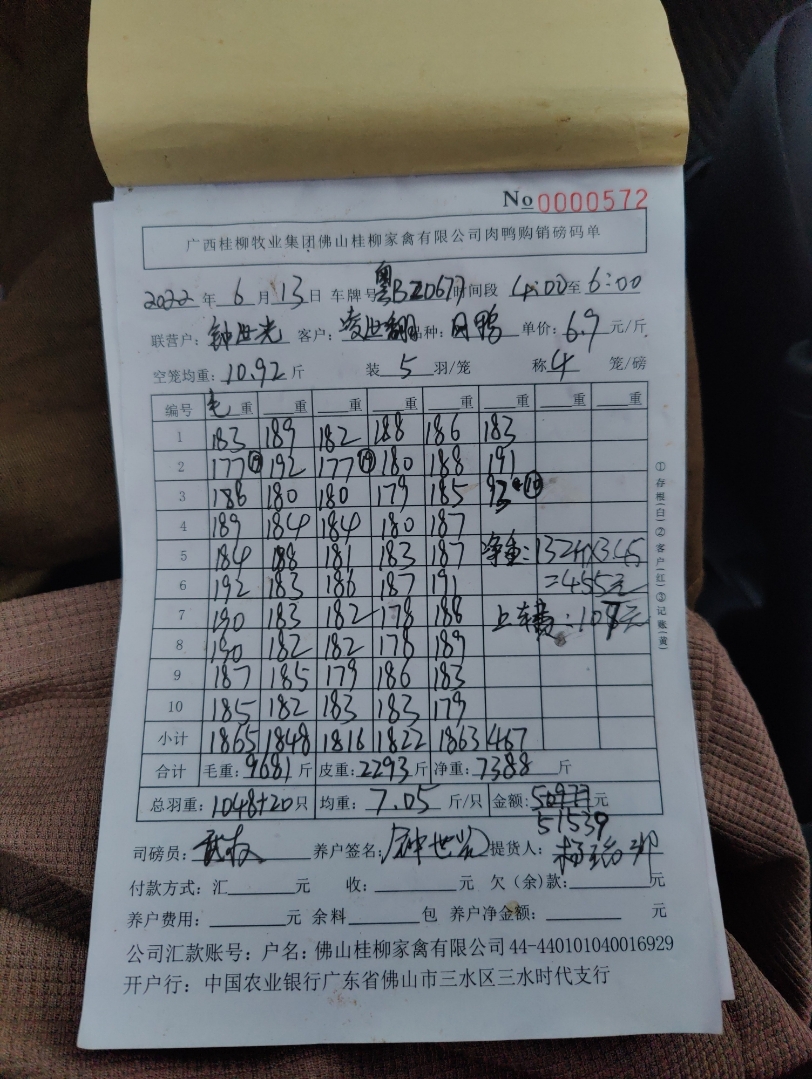 No 0000572
广西桂柳牧业集团佛山桂柳家禽有限公司肉鸭购销磅码单
2022年6月13日 车牌号粤BZ0677时间段4:00至6:00
联营户:钟世光 客户:凌世翻 品种:肉鸭 单价:6.9元/斤
空笼均重:10.92斤 装5羽/笼 称4笼/磅
编号 毛重 重 重 重 重 重 重 重
1 183 189 182 188 186 183
2 177⑲ 192 177⑲ 180 188 191
3 186 180 180 179 185 93
4 189 184 184 180 187
5 184 188 181 183 187 净重:1324
6 192 183 186 187 191 =455元
7 190 183 182 178 188 上车费:107元
8 190 182 182 178 189
9 187 185 179 186 183
10 185 182 183 183 179
小计 1865 1848 1816 1822 1863 467
合计 毛重:9681斤 皮重:2293斤 净重:7388斤
总羽重:1048+20只 均重:7.05斤/只 金额:50977元
51539
司磅员: 养户签名:钟世光 提货人:
付款方式:汇 元 收: 元 欠(余)款: 元
养户费用: 元 余料 包 养户净金额: 元
公司汇款账号:户名:佛山桂柳家禽有限公司44-440101040016929
开户行:中国农业银行广东省佛山市三水区三水时代支行
①存根(白)②客户(红)③记账(黄)